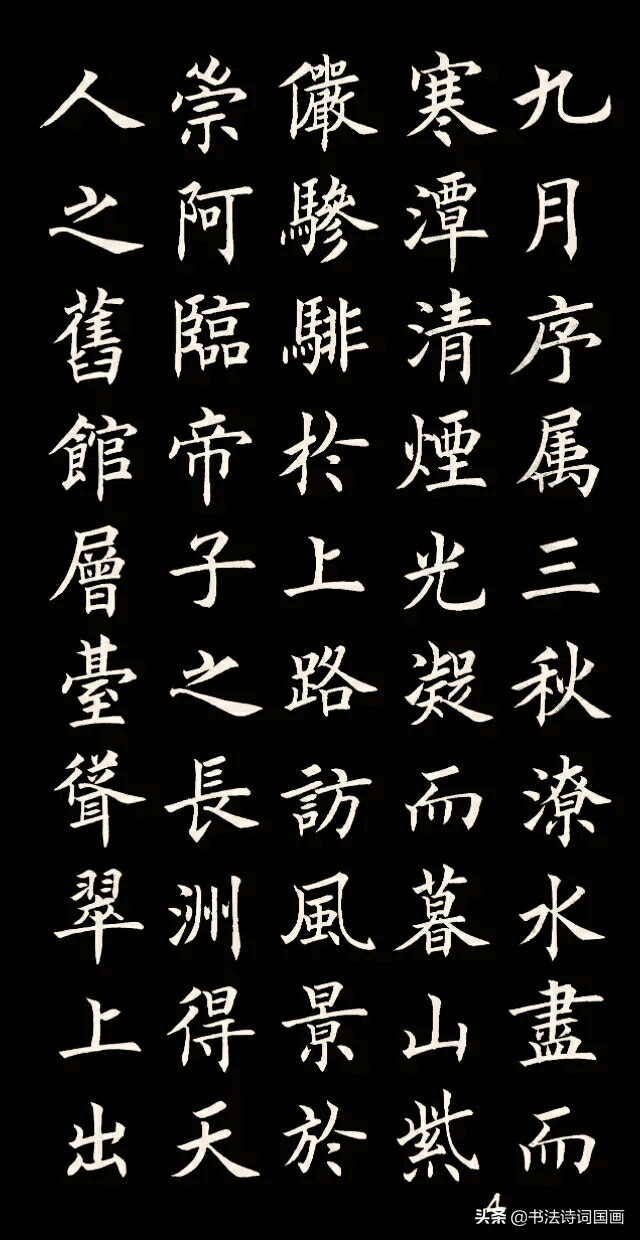 九月序属三秋潦水盡而
寒潭清煙光凝而暮山紫
儼驂騑於上路訪風景於
崇阿臨帝子之長洲得天
人之舊館層臺聳翠上出
4
头条 @书法诗词国画